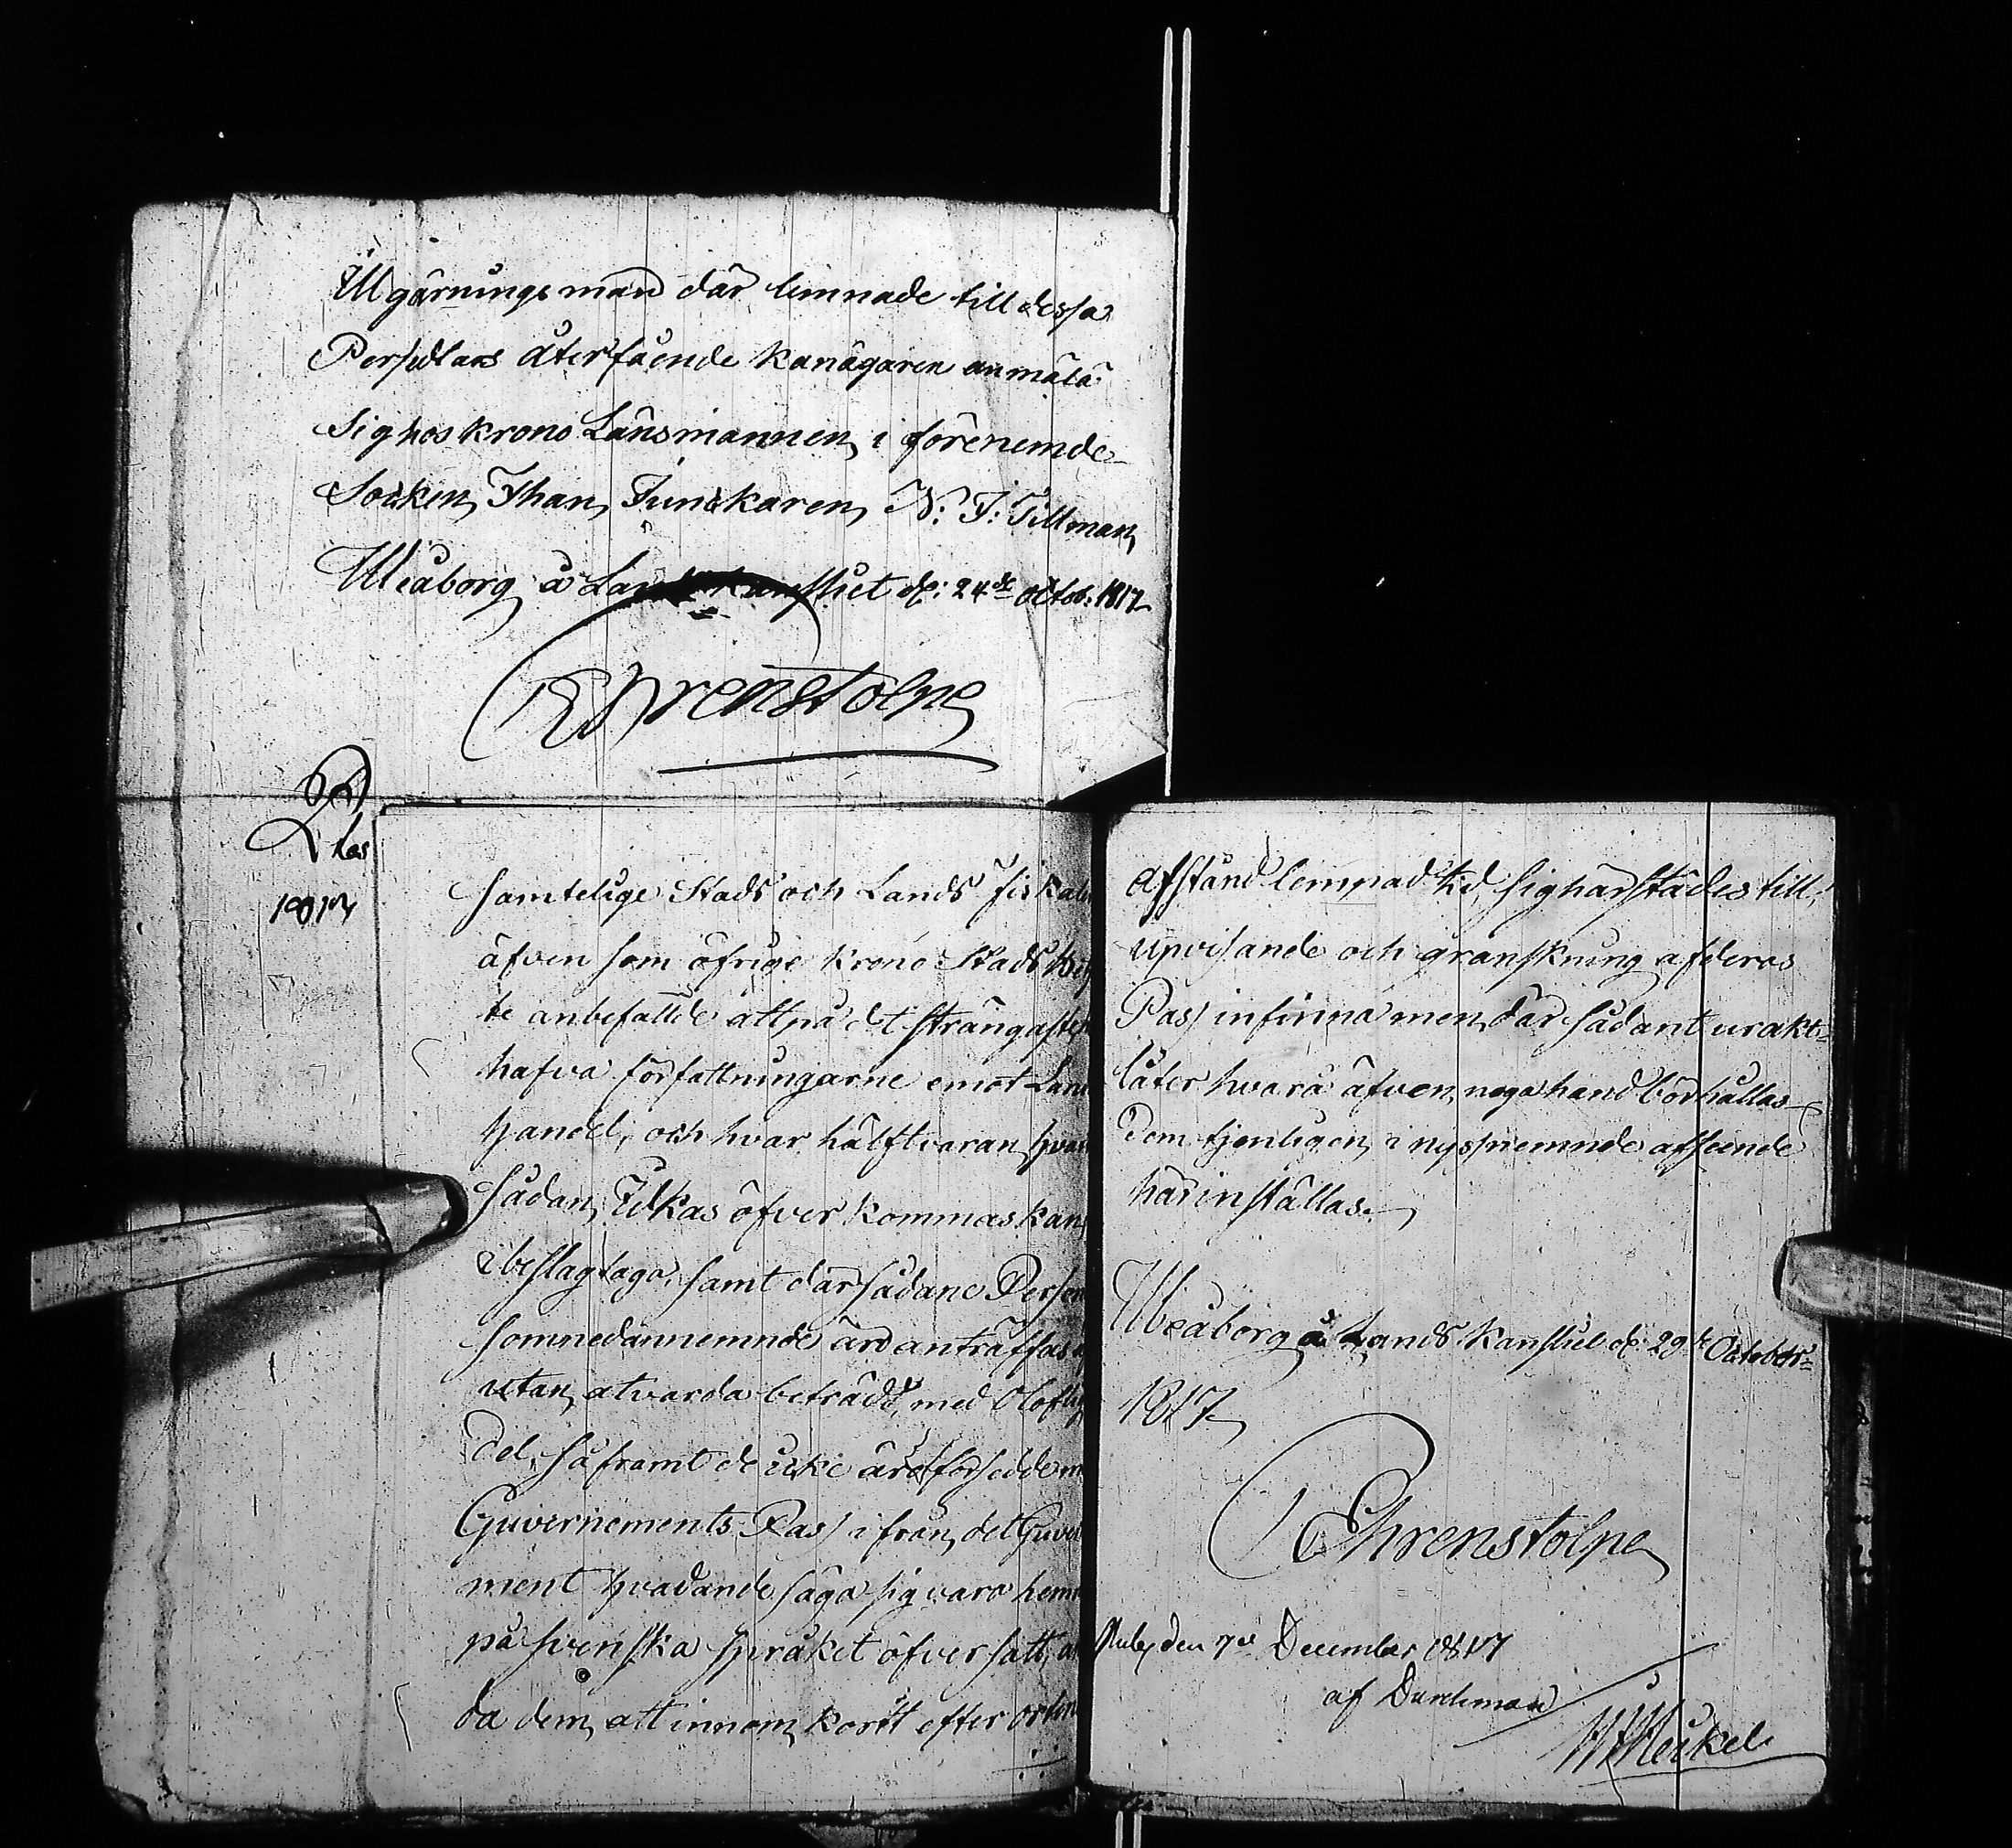 Illgärningsman där lemnade till dessa
Persedlars återfående kan ägaren anmäla
sig hos krono Länsmannen i förenemde
Socken Johan Junckaren N: J: Tillman
Uleåborg å Landskansliet d: 24de Octob: 1817
Ehrenstolpe
1817
Samtelige Stads och Lands Fiskaler
äfven som öfrige krono Stads Be
te anbefalde att på det strängaste
hafva författningarne emot Lan
handel, och hvar hälst varan hvar
sådan Idkas öfver kommas kan
i beslag taga, samt där sådane Person
som nedannemnde äro anträffas
utan at varda beträdd med Olofli
del, så framt de icke äro försedde m
Guvernements Pass i från det Guver
ment hvadan de säga sig vara hem
på svenska språket öfversatt, a
da dem att innom kort efter orten
afstånd lempad tid, sig härstädes till
upvisande och granskning af deras
Pass infinna men där sådant urakt=
låter hvarå äfven noga hand bör hållas
dem tjenligen i nyssnemnde afseende
här inställas.
Uleåborg å Lands kansliet d 29de October
1817
Ehrenstolpe
den 7de December 1817
af